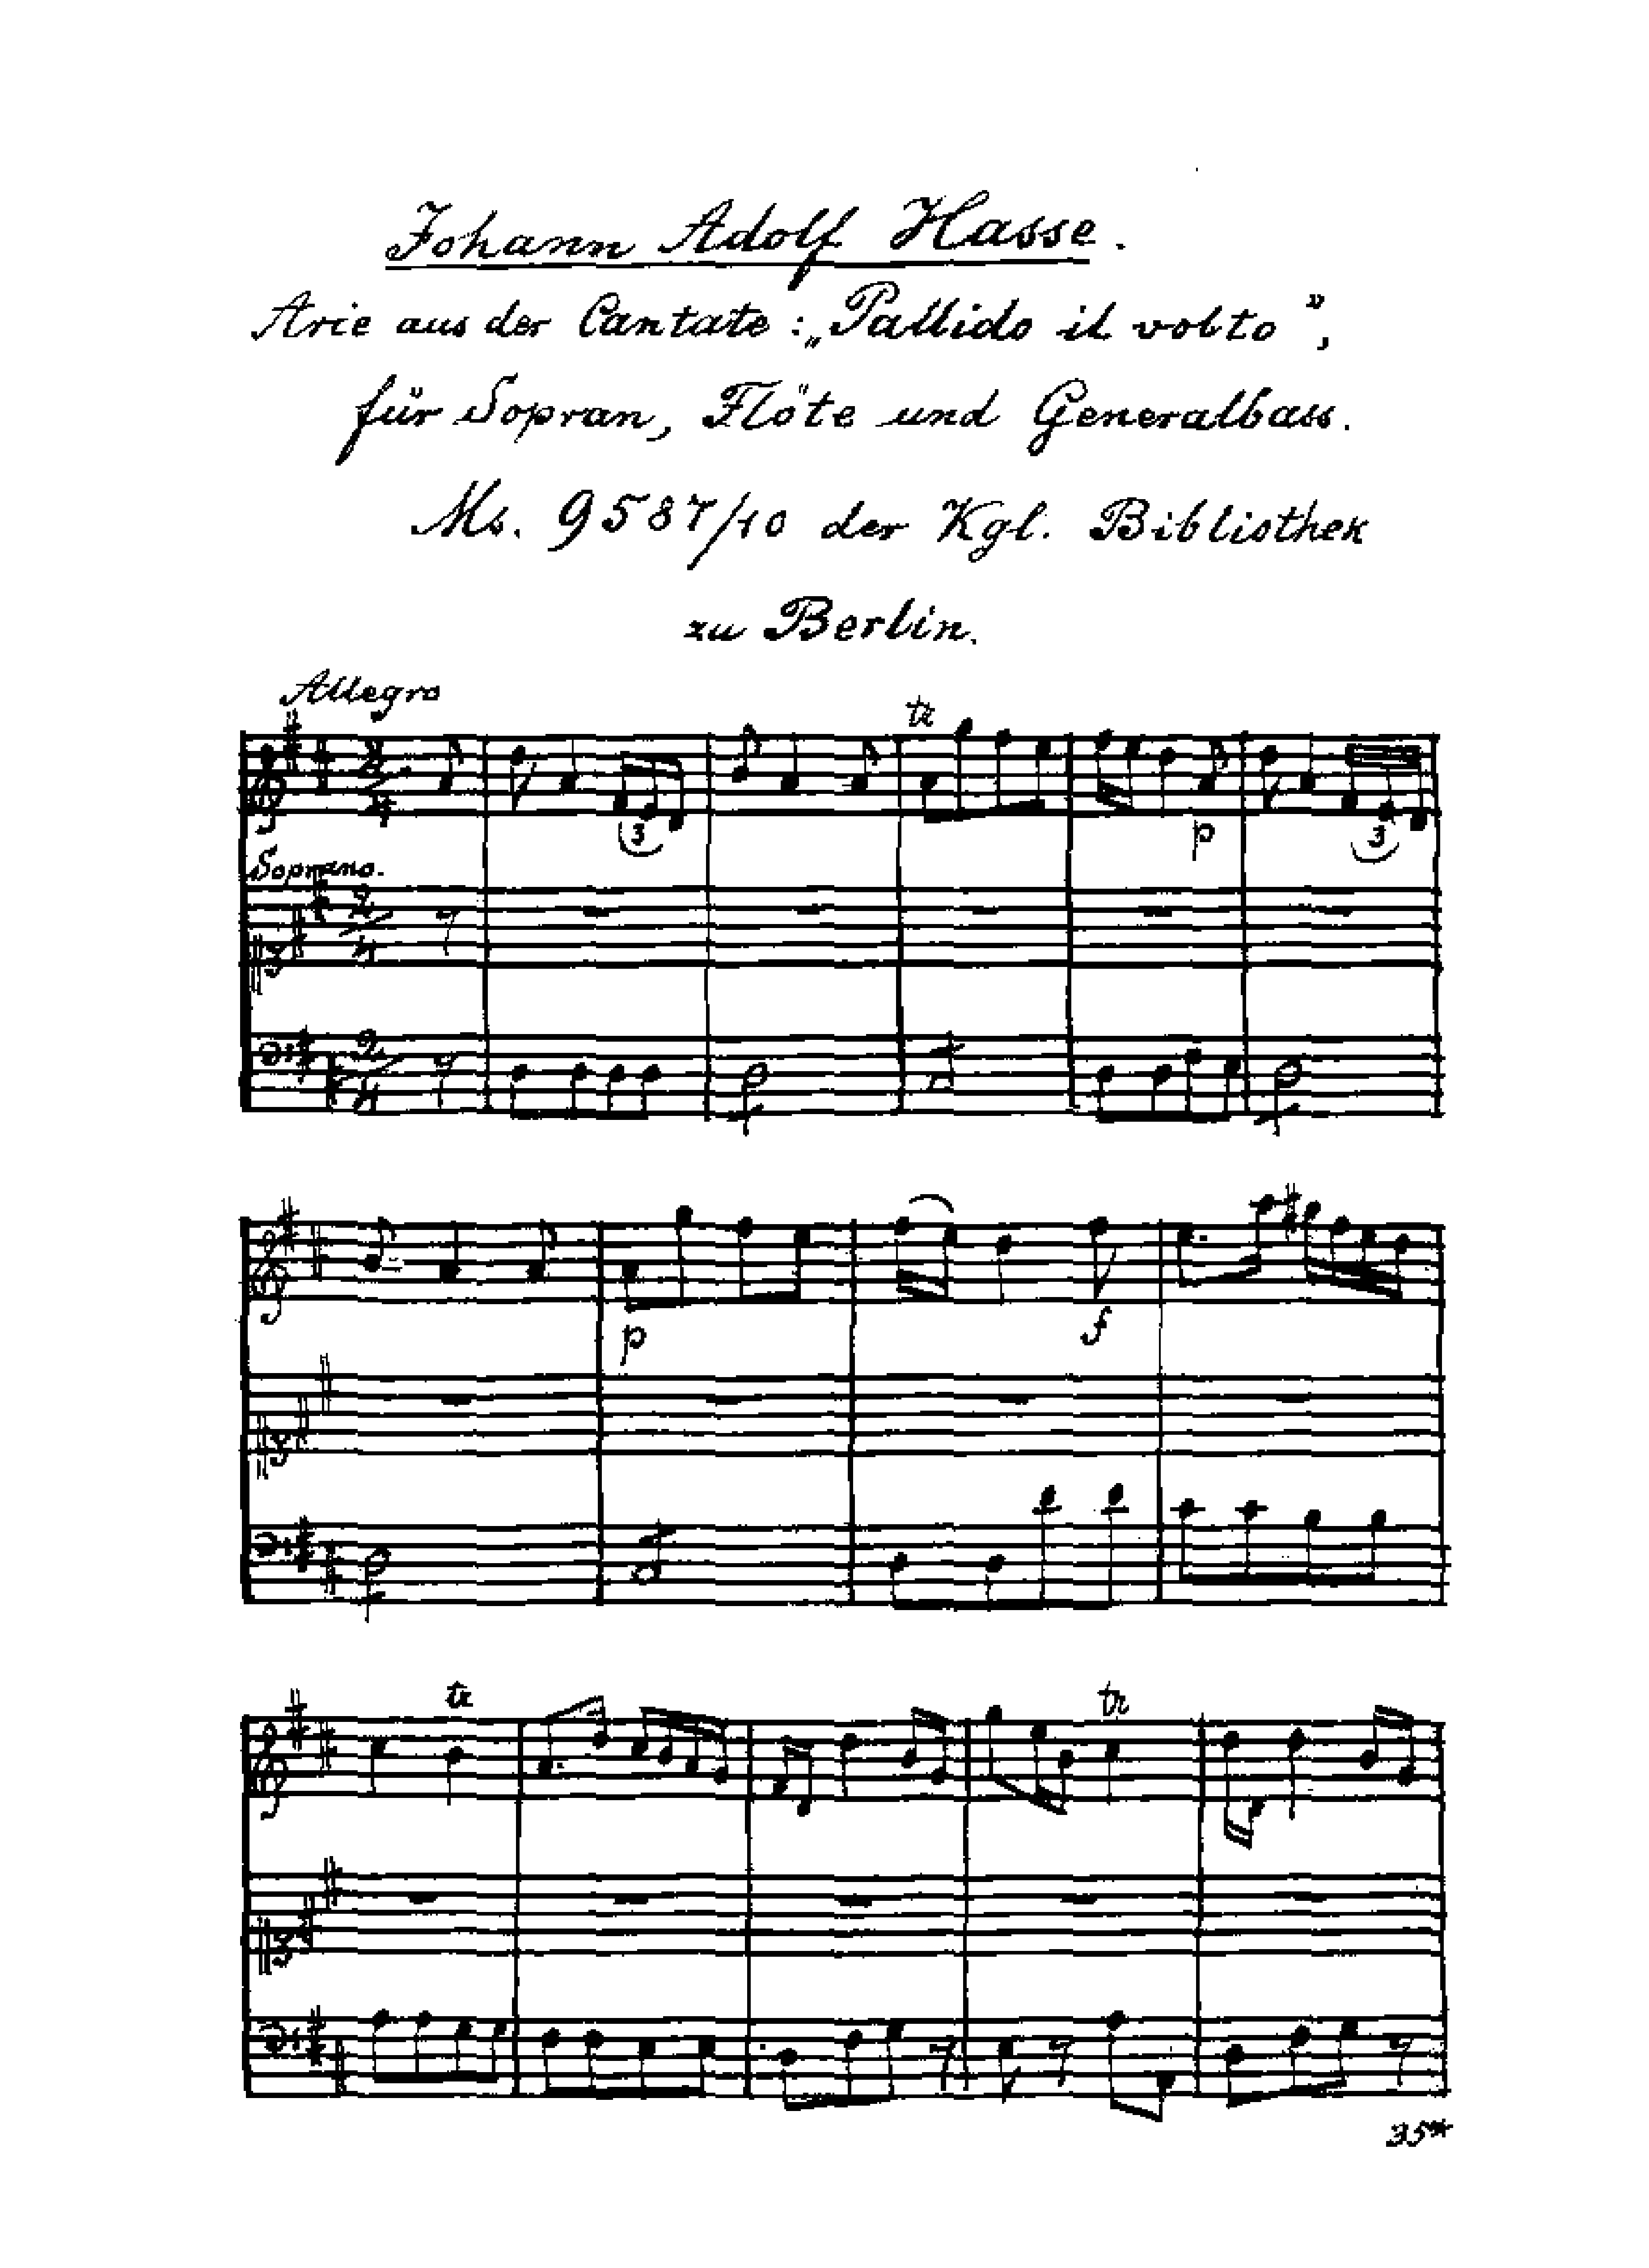 Johann Adolf Hasse.
Arie aus der Cantate: „Pallido il volto”,
für Sopran, Flöte und Generalbass.
Ms. 9587/10 der Kgl. Bibliothek
zu Berlin.
Allegro
tr
2/4
3
p
3
Soprano.
2/4
2/4
p
f
tr
tr
35*